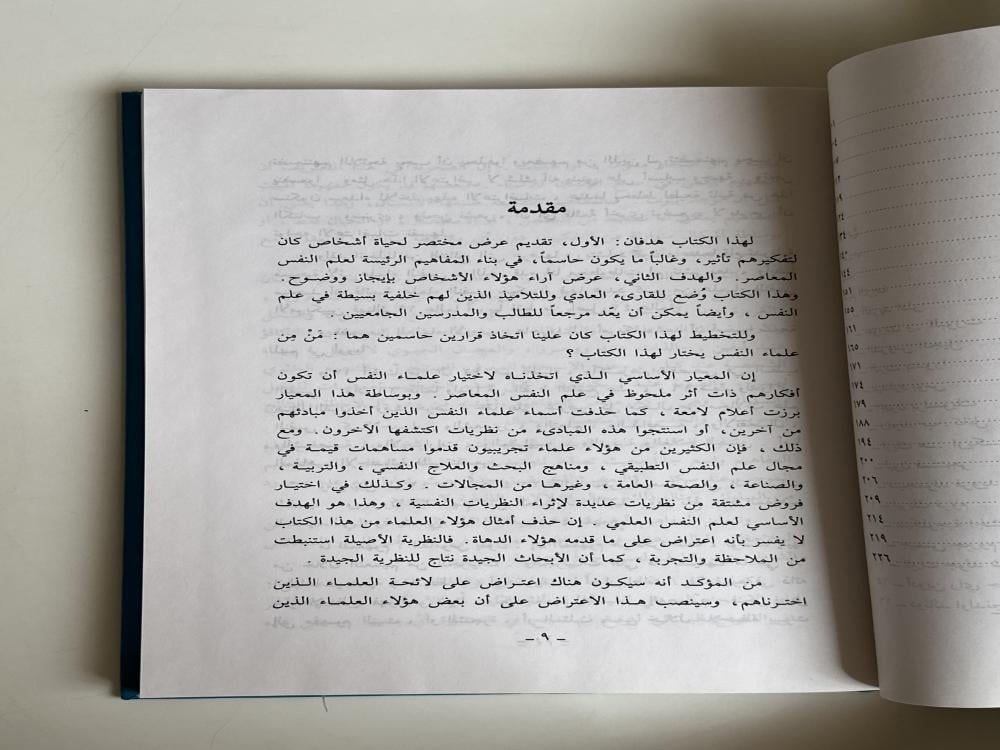 مقدمة
لهذا الكتاب هدفان: الأول، تقديم عرض مختصر لحياة أشخاص كان
لتفكيرهم تأثير، وغالباً ما يكون حاسماً، في بناء المفاهيم الرئيسة لعلم النفس
المعاصر. والهدف الثاني، عرض آراء هؤلاء الأشخاص بإيجاز ووضوح.
وهذا الكتاب وُضع للقارىء العادي وللتلاميذ الذين لهم خلفية بسيطة في علم
النفس، وأيضاً يمكن أن يعّد مرجعاً للطالب والمدرسين الجامعيين.
وللتخطيط لهذا الكتاب كان علينا اتخاذ قرارين حاسمين هما: مَنْ مِن
علماء النفس يختار لهذا الكتاب؟
إن المعيار الأساسي الذي اتخذناه لاختيار علماء النفس أن تكون
أفكارهم ذات أثر ملحوظ في علم النفس المعاصر. وبوساطة هذا المعيار
برزت أعلام لامعة، كما حذفت أسماء علماء النفس الذين أخذوا مبادئهم
من آخرين، أو استنتجوا هذه المبادىء من نظريات اكتشفها الآخرون. ومع
ذلك، فإن الكثيرين من هؤلاء علماء تجريبيون قدموا مساهمات قيمة في
مجال علم النفس التطبيقي، ومناهج البحث والعلاج النفسي، والتربية،
والصناعة، والصحة العامة، وغيرها من المجالات. وكذلك في اختيار
فروض مشتقة من نظريات عديدة لإثراء النظريات النفسية، وهذا هو الهدف
الأساسي لعلم النفس العلمي. إن حذف أمثال هؤلاء العلماء من هذا الكتاب
لا يفسر بأنه اعتراض على ما قدمه هؤلاء الدهاة. فالنظرية الأصيلة استنبطت
من الملاحظة والتجربة، كما أن الأبحاث الجيدة نتاج للنظرية الجيدة.
من المؤكد أنه سيكون هناك اعتراض على لائحة العلماء الذين
اخترناهم، وسينصب هذا الاعتراض على أن بعض هؤلاء العلماء الذين
– ٩ –
١٤٤
١٥١
١٥٥
١٦١
١٦٥
١٧١
١٧٤
١٧٩
١٨٨
١٩٤
٢٠٠
٢٠٦
٢٠٩
٢١٤
٢١٩
٢٢٦